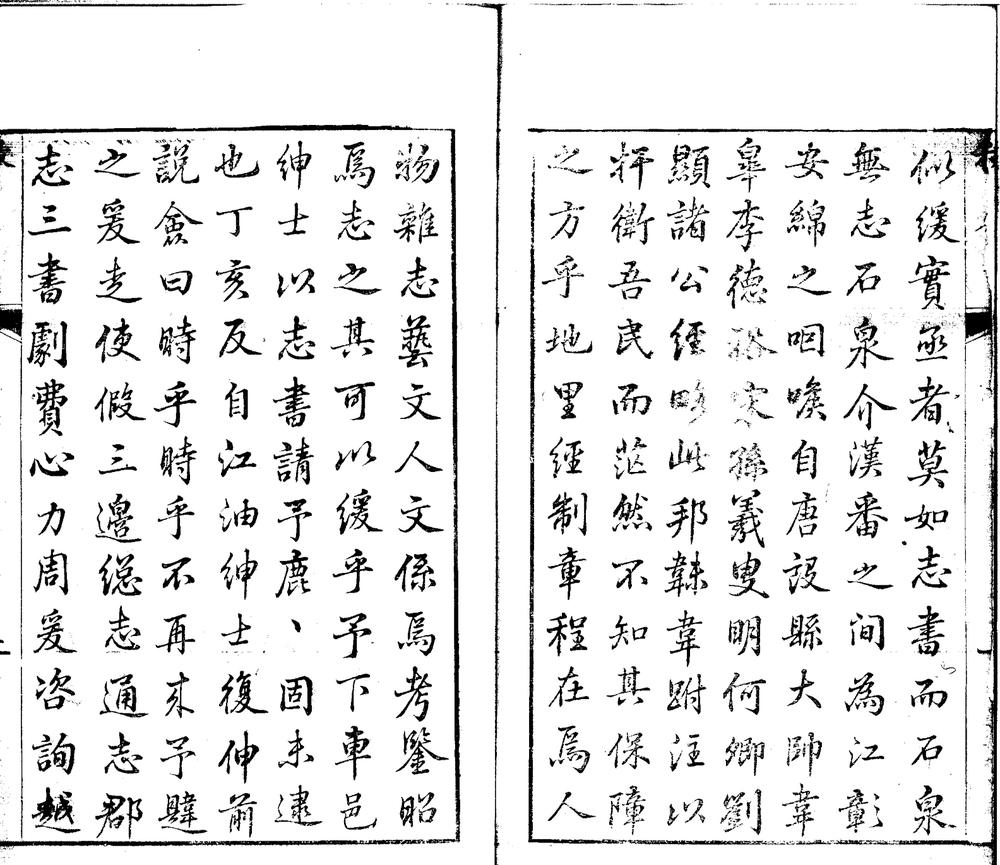 似緩實亟者莫如志書而石泉
無志石泉介漢番之間為江彰
安綿之咽喉自唐設縣大帥韋
皐李德裕宋孫羲叟明何卿劉
顯諸公經略此邦韎韋跗注以
扞衛吾民而茫然不知其保障
之方乎地里經制章程在焉人
物雜志藝文人文係焉考鑒昭
焉志之其可以緩乎予下車邑
紳士以志書請予鹿鹿固未逮
也丁亥反自江油紳士復伸前
說僉曰時乎時乎不再来予韙
之爰走使假三邊總志通志郡
志三書劇費心力周爰咨詢越